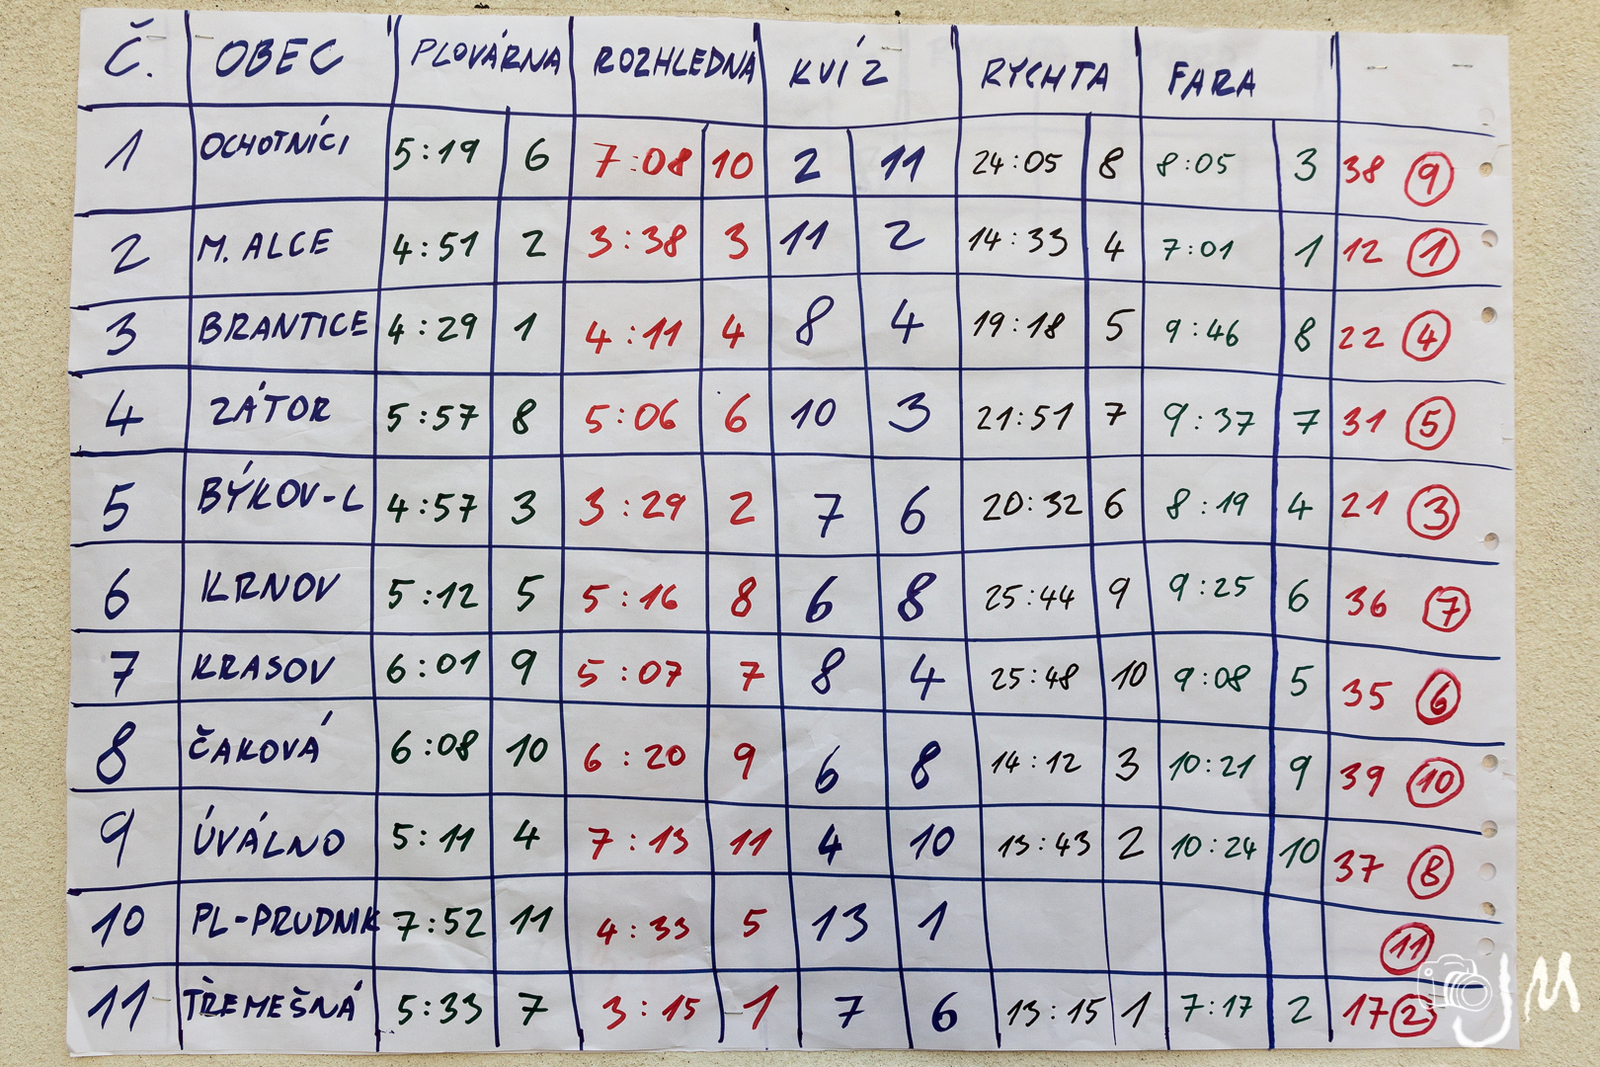 Č. OBEC PLOVÁRNA ROZHLEDNA KVÍZ RYCHTA FARA
1 OCHOTNÍCI 5:19 6 7:08 10 2 11 24:05 8 8:05 3 38 9
2 M. ALCE 4:51 2 3:38 3 11 2 14:33 4 7:01 1 12 1
3 BRANTICE 4:29 1 4:11 4 8 4 19:18 5 9:46 8 22 4
4 ZÁTOR 5:57 8 5:06 6 10 3 21:51 7 9:37 7 31 5
5 BÝKOV-L 4:57 3 3:29 2 7 6 20:32 6 8:19 4 21 3
6 KRNOV 5:12 5 5:16 8 6 8 25:44 9 9:25 6 36 7
7 KRASOV 6:01 9 5:07 7 8 4 25:48 10 9:08 5 35 6
8 ČAKOVÁ 6:08 10 6:20 9 6 8 14:12 3 10:21 9 39 10
9 ÚVÁLNO 5:11 4 7:13 11 4 10 13:43 2 10:24 10 37 8
10 PL-PRUDNIK 7:52 11 4:33 5 13 1 11
11 TŘEMEŠNÁ 5:33 7 3:15 1 7 6 13:15 1 7:17 2 17 2
JM